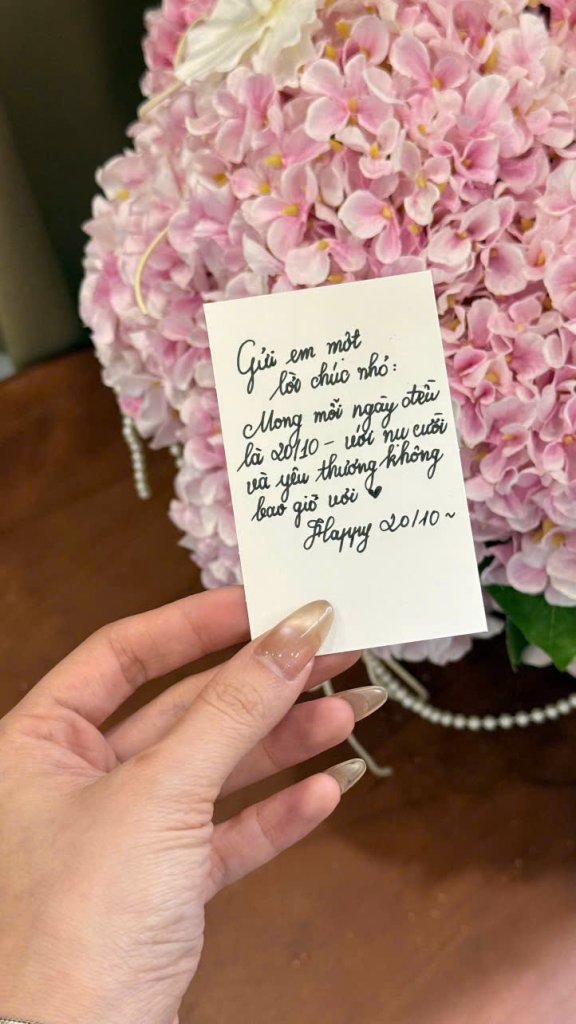 Gửi em một
lời chúc nhỏ:
Mong mỗi ngày đều
là 20/10 - với nụ cười
và yêu thương không
bao giờ vơi ♥
Happy 20/10 ~